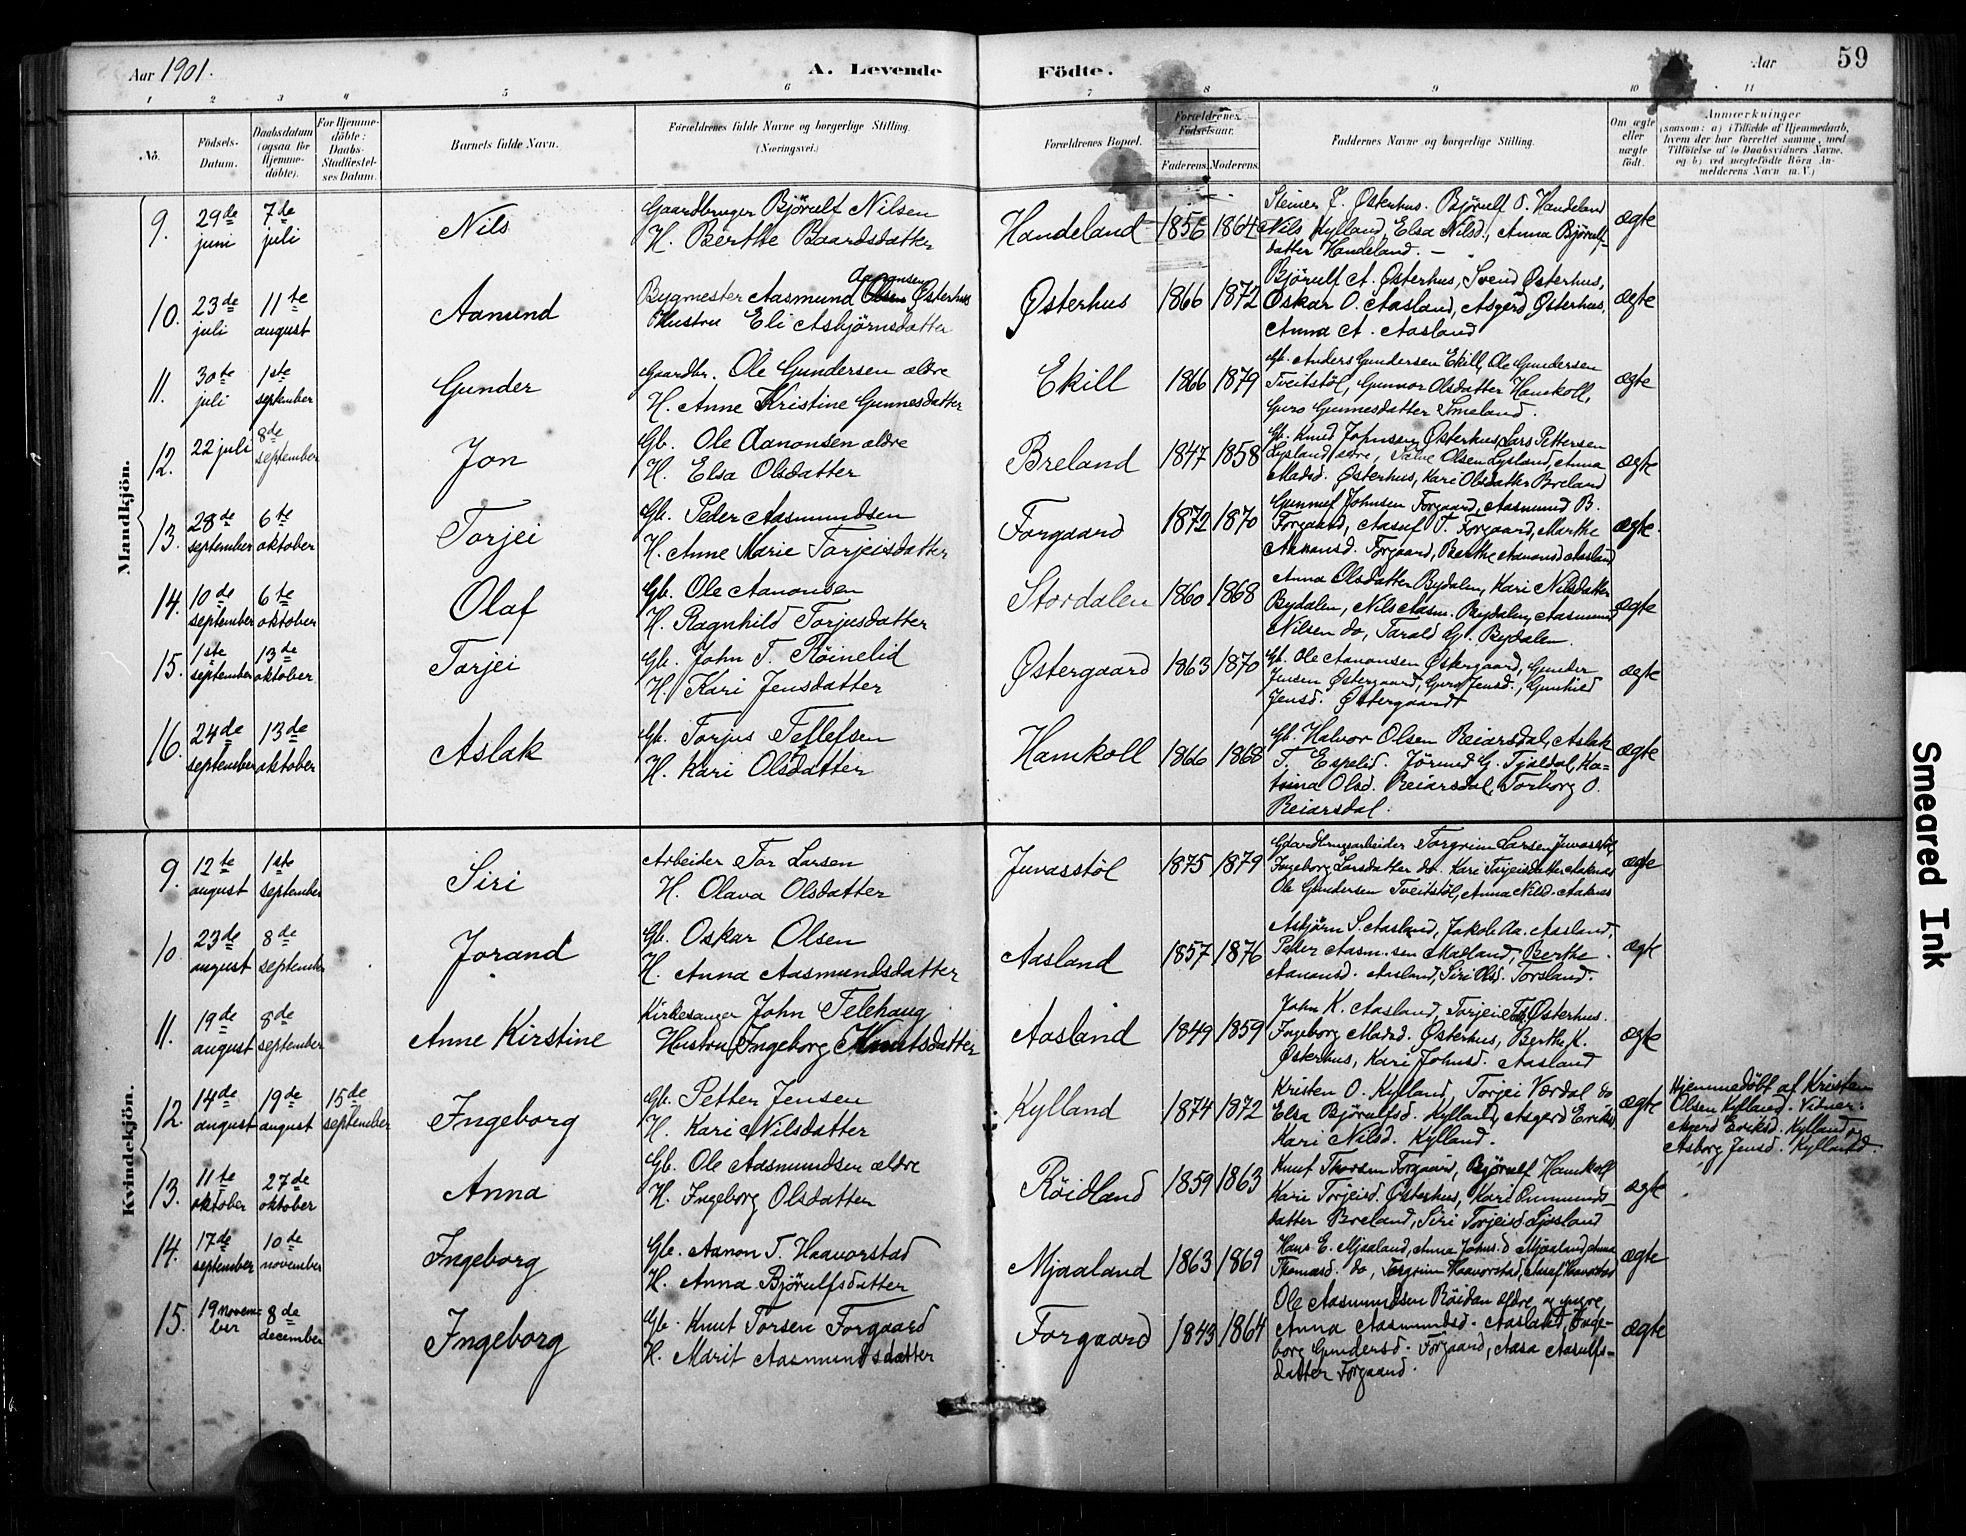 Aar 1901. A. Levende Födte. Aar 59
1 2 3 4 5 6 7 8 9 10 11
No. Födsels-Datum. Daabsdatum (ogsaa for Hjemme-döbte). For Hjemme-döbte: Daabs-Stadfæstel-ses Datum. Barnets fulde Navn. Forældrenes fulde Navne og borgerlige Stilling. (Næringsvei.) Forældrenes Bopæl. Forældrenes Födselsaar. Faderens. Moderens. Faddernes Navne og borgerlige Stilling. Om ægte eller uægte födt. Anmerkninger (saasom: a) i Tilfælde af Hjemmedaab, hvem der har forrettet samme, med Tilföielse af to Daabsvidners Navne, og b) ved uægtefödte Börn An-melderens Navn m. V.)
Mandkjön.
9. 29de juni 7de juli Nils Gaardbruger Bjørulf Nilsen
H. Berthe Baardsdatter Handeland 1856 1864 Steiner J. Østerhus. Bjørulf O. Handeland
Nils Kylland, Elsa Nilsd., Anna Bjørulfs-
datter Handeland. -
ægte
10. 23de juli 11te august Aamund Bygmester Aasmund Olsen Aanonsen Østerhus
Hustru Eli Asbjørnsdatter Østerhus 1866 1872 Bjørulf A. Østerhus, Svend Østerhus,
Oskar O. Aasland, Asgerd Østerhus,
Anna A. Aasland
ægte
11. 30te juli 1ste september Gunder Gaardbr. Ole Gundersen ældre
H. Anne Kristine Gunnesdatter Ekill 1866 1879 Gb. Anders Gundersen Ekill, Ole Gundersen
Tveitstöl, Gunnor Olsdatter Hamkoll,
Guro Gunnesdatter Smeland.
ægte
12. 22 juli 8de september Jon Gb. Ole Aanonsen ældre
H. Elsa Olsdatter Breland 1847 1858 Gb. Knud Johnsen Østerhus, Lars Pettersen
Lysland ældre, Salve Olsen Lysland, Anna
Madsd. Østerhus, Kari Olsdatter Breland
ægte
13. 28de september 6te oktober Torjei Gb. Peder Aasmundsen
H. Anne Marie Torjeisdatter Forgaard 1872 1870 Gunnuf Johnsen Forgaard, Aasmund B.
Forgaard, Aasuf T. Forgaard, Marthe
Aanonsd. Forgaard, Berthe Aanonsd Aasland
ægte.
14. 10de september 6te oktober Olaf Gb. Ole Aanonsen
H. Ragnhild Torjusdatter Stordalen 1860 1868 Anna Olsdatter Bydalen, Kari Nilsdatter
Bydalen, Nils Aasm. Bydalen, Aasmund
Nilsen do, Tarald G. Bydalen.
ægte
15. 1ste september 13de oktober Torjei Gb. John T. Röinelid
H. Kari Jensdatter Østergaard 1863 1870 Gb. Ole Aanonsen Østergaard, Gunder
Jensen Østergaard, Guro Jensd., Gunhild
Jensd. Østergaard
ægte
16. 24de september 13de oktober Aslak Gb. Torjus Tellefsen
H. Kari Olsdatter Hamkoll 1866 1868 Gb. Halvor Olsen Reiarsdal, Aslak
T. Espelid. Jörund G. Tjaldal, Ka-
trina Olsd. Reiarsdal, Torborg O.
Reiarsdal.
ægte
Kvindekjön.
9. 12te august 1ste september Siri Arbeider Tor Larsen
H. Olava Olsdatter Juvasstöl 1875 1879 Gaardbrugsarbeider Torgrim Larsen Juvasstöl,
Ingeborg Larsdatter do. Kari Torjeisdatter Aaknes
Ole Gundersen Tveitstöl, Anna Nilsd. Aaknes
ægte
10. 23de august 8de september Jorand Gb. Oskar Olsen
H. Anna Aasmundsdatter Aasland 1857 1876 Asbjörn S. Aasland, Jakob Aa. Aasland,
Peder Aasm.sen Aasland, Berthe
Aanonsd. Aasland, Siri Olsd. Torsland.
ægte
11. 19de august 8de september Anne Kirstine Kirkesanger John Telehaug
Hustru Ingeborg Knutsdatter Aasland 1849 1859 John K. Aasland, Torjei Østerhus.
Ingeborg Madsd. Østerhus, Berthe K.
Østerhus, Kari Johnsd. Aasland
ægte
12. 14de august 19de august 15de september Ingeborg Gb. Petter Jensen
H. Kari Nilsdatter Kylland 1874 1872 Kristen O. Kylland, Torjei Værdal do
Elsa Bjørulfsd. Kylland, Asgerd Eriksd.
Kari Nilsd. Kylland.
ægte Hjemmedöbt af Kristen
Olsen Kylland. Vidner:
Asgerd Eriksd. Kylland og
Asborg Jensd. Kylland.
13. 11te oktober 27de oktober Anna Gb. Ole Aasmundsen ældre
H. Ingeborg Olsdatter Röidland 1859 1863 Knut Thorsen Forgaard, Bjørulf Hamkoll,
Kari Torjeisd. Østerhus, Kari Ommunds-
datter Breland, Siri Torjeisd Ljosland
ægte
14. 17de september 10de november Ingeborg Gb. Aanon T. Haavorstad
H. Anna Bjørulfsdatter Mjaaland 1863 1869 Hans E. Mjaaland, Anna Johns.d Mjaaland, Anna
Thomasd. do, Torgrim Haavorstad, Aasuf Haavorstad
ægte
15. 19 novem-ber 8de december Ingeborg Gb. Knut Torsen Forgaard
H. Marit Aasmundsdatter Forgaard 1843 1864 Ole Aasmundsen Röidan ældre og yngre
Anna Aasmundsd. Aasland, Inge-
borg Gundersd. Forgaard, Aasa Aasulfs-
datter Forgaard.
ægte
Smeared Ink